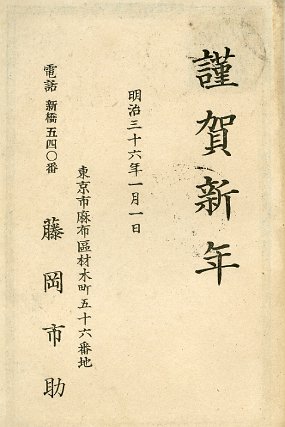 謹賀新年
明治三十六年一月一日
東京市麻布區材木町五十六番地
藤岡市助
電話新橋五四〇番